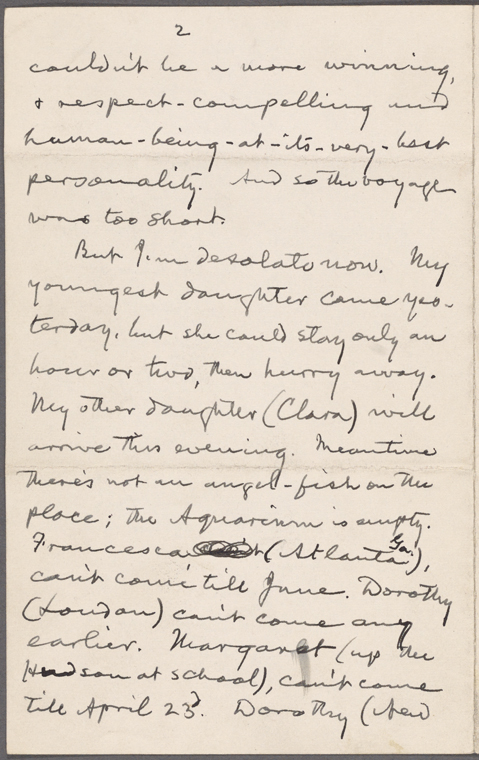 2
couldn't be a more winning,
& respect-compelling and
human-being-at-its-very-best
personality. And so the voyage
was too short.
But I'm desolate now. My
youngest daughter came yes-
terday, but she could stay only an
hour or two, then hurry away.
My other daughter (Clara) will
arrive this evening. Meantime
there's not an angel-fish on the
place; the Aquarium is empty.
Francesca (Atlanta Ga.),
can't come till June. Dorothy
(London) can't come any
earlier. Margaret (up the
Hudson at school), can't come
till April 23d. Dorothy (New